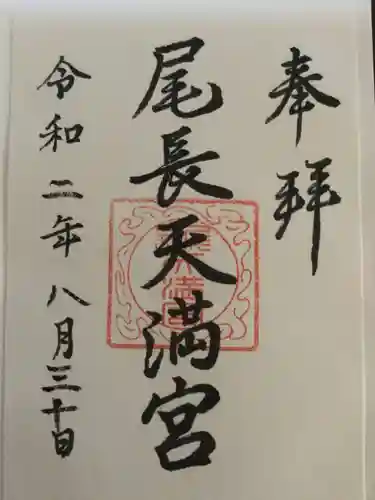 奉拝
尾長天満宮
令和二年八月三十日